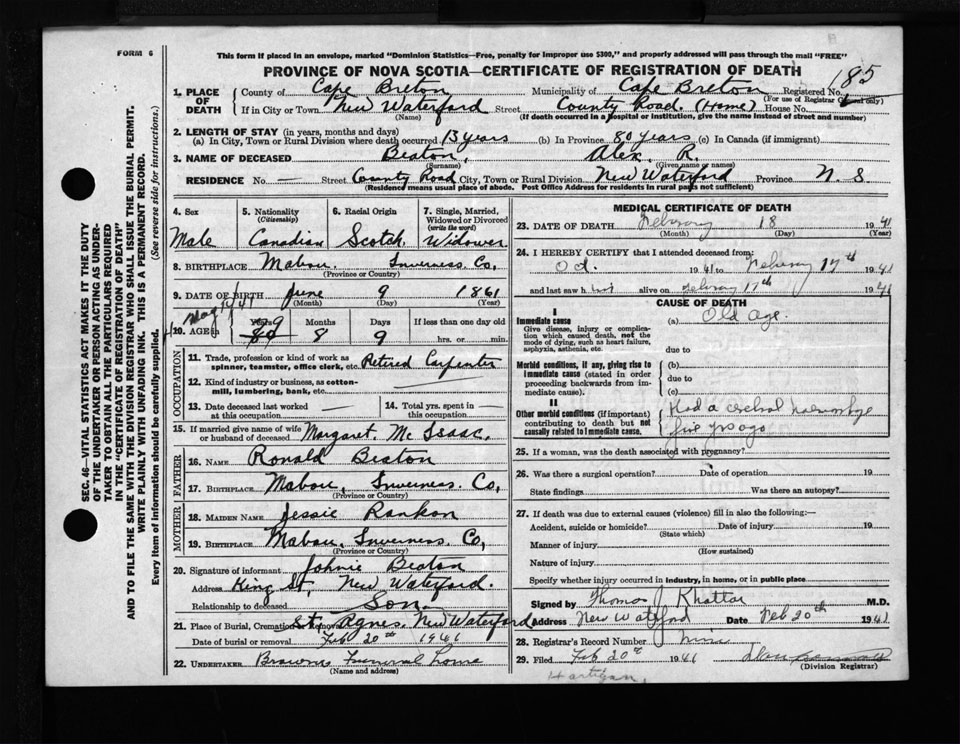 FORM 6
This form if placed in an envelope, marked "Dominion Statistics—Free, penalty for improper use $300," and properly addressed will pass through the mail "FREE"
PROVINCE OF NOVA SCOTIA—CERTIFICATE OF REGISTRATION OF DEATH
185
1. PLACE OF DEATH
County of Cape Breton Municipality of Cape Breton Registered No.
(For use of Registrar General only)
If in City or Town New Waterford Street County Road. (Home) House No.
(Name) (If death occurred in a hospital or institution, give the name instead of street and number)
2. LENGTH OF STAY (in years, months and days)
(a) In City, Town or Rural Division where death occurred 13 years (b) In Province 80 years (c) In Canada (if immigrant)
3. NAME OF DECEASED Beaton, Alex. R.
(Surname) (Given name or names)
RESIDENCE No. — Street County Road City, Town or Rural Division New Waterford Province N. S.
(Residence means usual place of abode. Post Office Address for residents in rural parts not sufficient)
4. Sex
Male
5. Nationality
(Citizenship)
Canadian
6. Racial Origin
Scotch
7. Single, Married, Widowed or Divorced
(write the word)
Widower
8. BIRTHPLACE Mabou, Inverness Co,
(Province or Country)
9. DATE OF BIRTH June 9 1861
(Month) (Day) (Year)
10. AGE
Years 80 79
Months 8
Days 9
If less than one day old
hrs. or min.
OCCUPATION
11. Trade, profession or kind of work as spinner, teamster, office clerk, etc. Retired Carpenter
12. Kind of industry or business, as cotton-mill, lumbering, bank, etc. —
13. Date deceased last worked at this occupation —
14. Total yrs. spent in this occupation —
15. If married give name of wife or husband of deceased Margaret. Mc Isaac,
FATHER
16. NAME Ronald Beaton
17. BIRTHPLACE Mabou, Inverness. Co,
(Province or Country)
MOTHER
18. MAIDEN NAME Jessie Rankon
19. BIRTHPLACE Mabou, Inverness Co,
(Province or Country)
20. Signature of informant Johnie Beaton
Address King St, New Waterford.
Relationship to deceased Son
21. Place of Burial, Cremation or Removal St, Agnes, New Waterford
Date of burial or removal Feb 20th 1941
22. UNDERTAKER Browns Funeral Home
(Name and address)
MEDICAL CERTIFICATE OF DEATH
23. DATE OF DEATH February 18 1941
(Month) (Day) (Year)
24. I HEREBY CERTIFY that I attended deceased from:
1941 to February 17th 1941
and last saw h him alive on February 17th 1941
CAUSE OF DEATH
I
Immediate cause
Give disease, injury or complication which caused death, not the mode of dying, such as heart failure, asphyxia, asthenia, etc.
(a) Old age.
due to
Morbid conditions, if any, giving rise to immediate cause (stated in order proceeding backwards from immediate cause).
(b)
due to
(c)
II
Other morbid conditions (if important) contributing to death but not causally related to immediate cause.
Had a cerebral haemorrhage
five yrs ago
25. If a woman, was the death associated with pregnancy?
26. Was there a surgical operation? Date of operation 19
State findings Was there an autopsy?
27. If death was due to external causes (violence) fill in also the following:—
Accident, suicide or homicide? Date of injury 19
(State which)
Manner of injury
(How sustained)
Nature of injury
Specify whether injury occurred in industry, in home, or in public place
Signed by Thomas J Khattar M.D.
Address New Waterford Date Feb 20th 1941
28. Registrar's Record Number Nine
29. Filed Feb 20th 1941
(Division Registrar)
Hartigan,
SEC. 46—VITAL STATISTICS ACT MAKES IT THE DUTY OF THE UNDERTAKER OR PERSON ACTING AS UNDERTAKER TO OBTAIN ALL THE PARTICULARS REQUIRED IN THE "CERTIFICATE OF REGISTRATION OF DEATH" AND TO FILE THE SAME WITH THE DIVISION REGISTRAR WHO SHALL ISSUE THE BURIAL PERMIT.
WRITE PLAINLY WITH UNFADING INK. THIS IS A PERMANENT RECORD.
Every item of information should be carefully supplied. (See reverse side for instructions.)